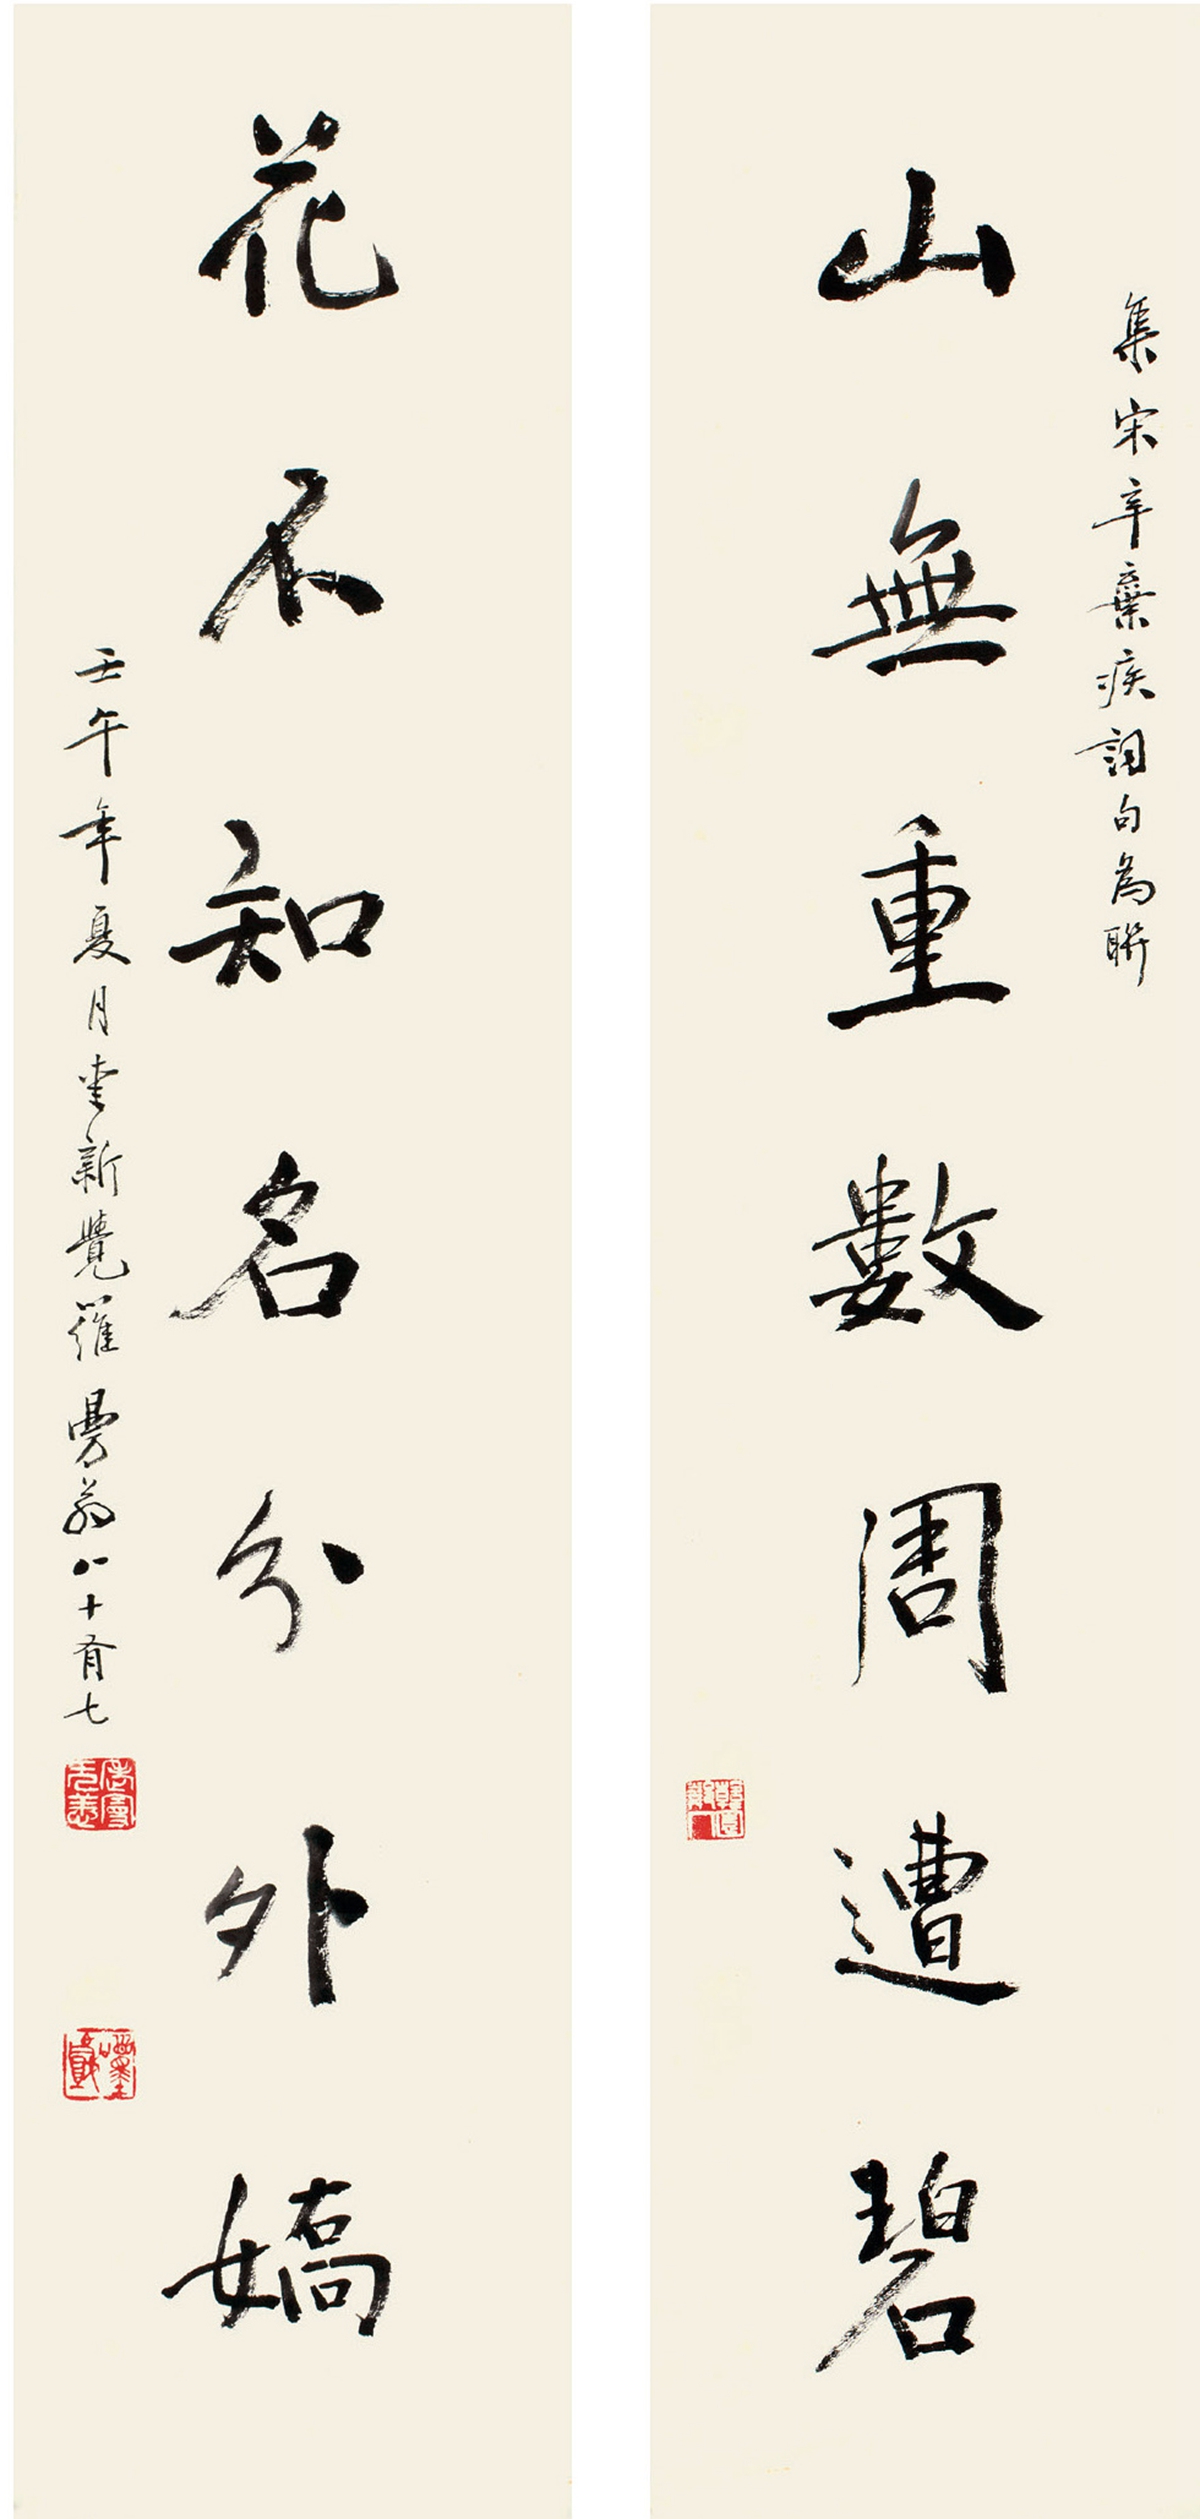 集宋辛棄疾詞句為聯
山無重數周遭碧
花不知名分外嬌
壬午年夏月愛新覺羅曼翁八十有七